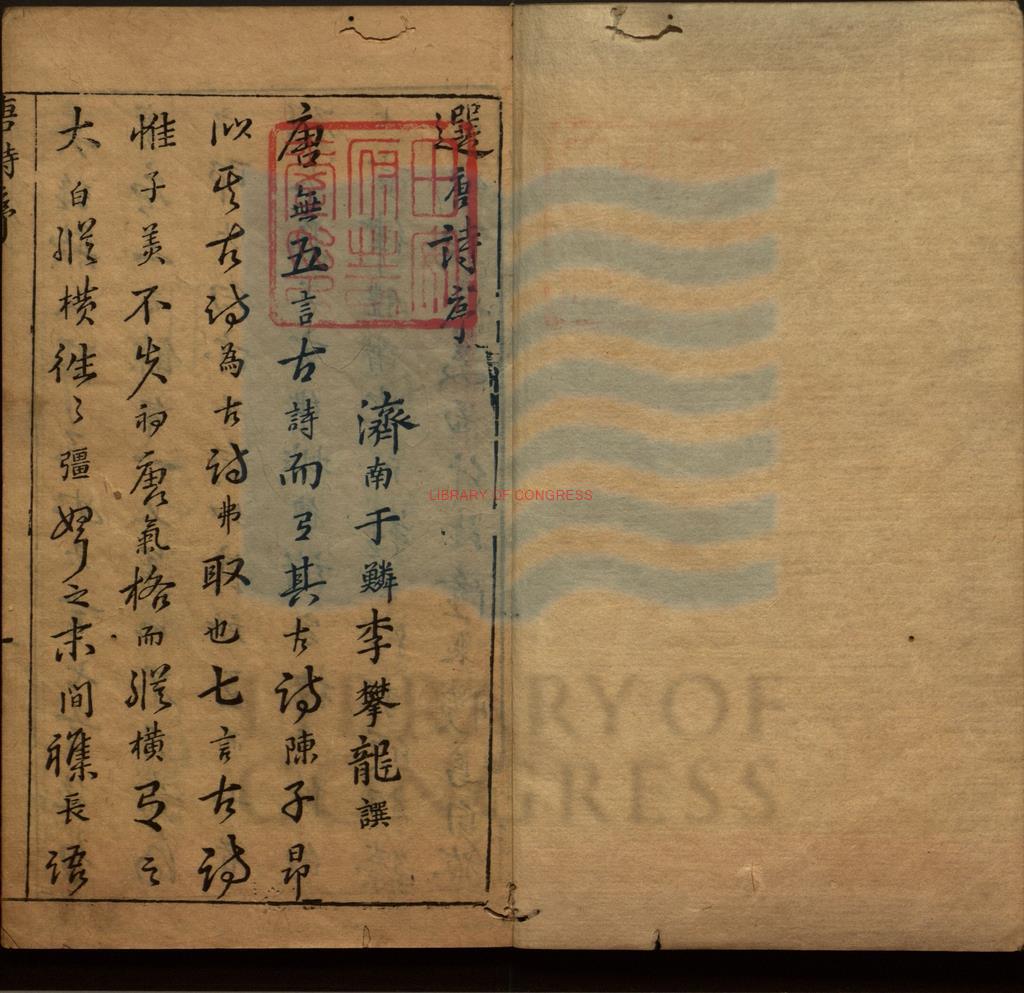 選唐詩序
濟南于鱗李攀龍譔
唐無五言古詩而有其古詩陳子昂
以其古詩為古詩弗取也七言古詩
惟子美不失初唐氣格而縱橫有之
太白縱橫徃々彊弩之末間雜長語
唐詩序
LIBRARY OF CONGRESS
LIBRARY OF
CONGRESS